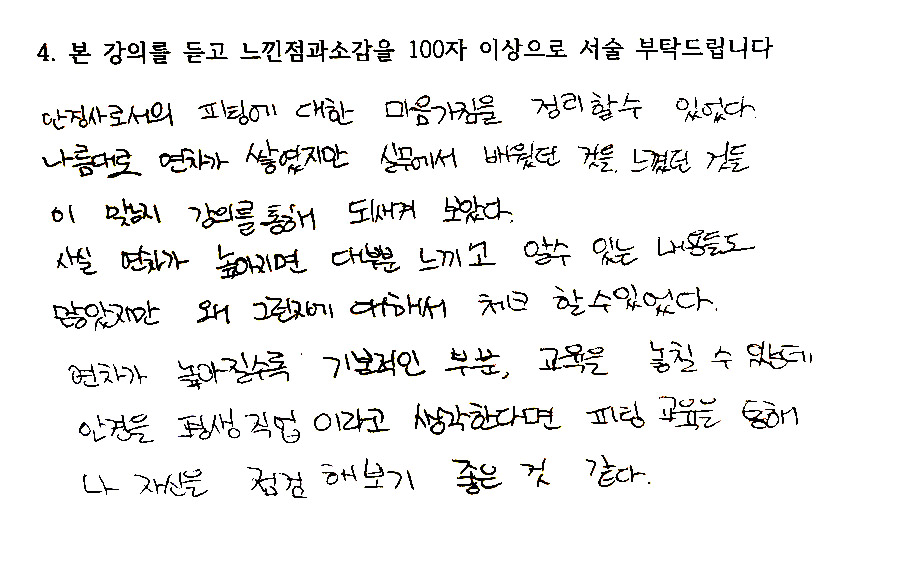 4. 본 강의를 듣고 느낀점과소감을 100자 이상으로 서술 부탁드립니다
안경사로서의 피팅에 대한 마음가짐을 정리할수 있었다.
나름대로 연차가 쌓였지만 실무에서 배웠던 것들, 느꼈던 것들
이 맞는지 강의를 통해 되새겨 보았다.
사실 연차가 높아지면 대부분 느끼고 알수 있는 내용들도
많았지만 왜 그런지에 대해서 체크 할수있었다.
연차가 높아질수록 기본적인 부분, 교육을 놓칠 수 있는데
안경을 평생직업이라고 생각한다면 피팅 교육을 통해
나 자신을 점검 해보기 좋은 것 같다.